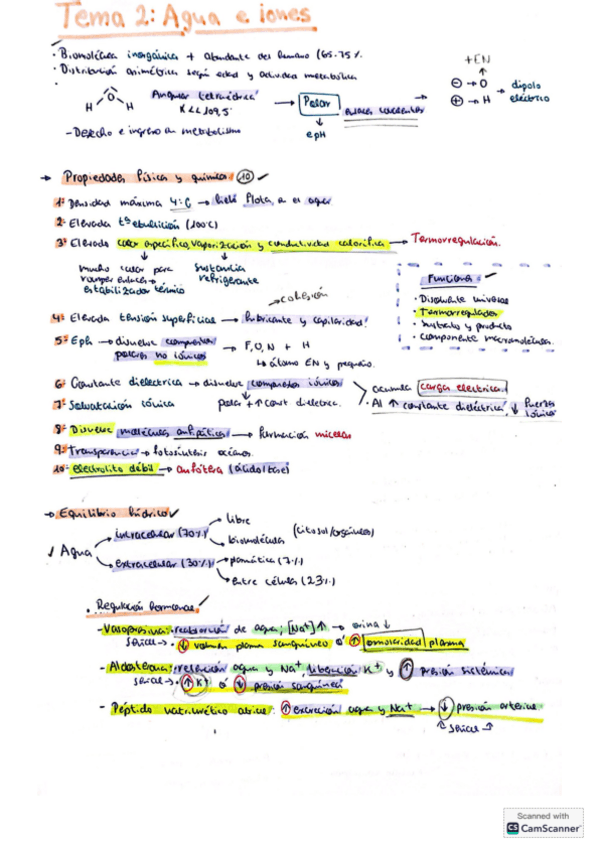 Tema 2: Agua e iones
· Biomolécula inorgánica + abundante del humano (65-75%)
· Distribución asimétrica según edad y actividad metabólica
+EN
H O H
Angular tetraédrica
K<<109,5
Polar
ePH
Enlaces covalentes
⊖ → O
⊕ → H
dipolo eléctrico
- Desecho e ingreso en metabolismo
→ Propiedades físicas y químicas (10)
1º Densidad máxima 4ºC → hielo flota, en el agua
2º Elevada tº ebullición (100ºC)
3º Elevado calor específico, vaporización y conductividad calorífica → Termorregulación.
mucho calor para romper enlaces → estabilizador térmico
sustancia refrigerante
Funciones
· Disolvente universal
· Termorregulador
· Sustrato y producto
· Componente macromoléculas.
→ cohesión
4º Elevada tensión superficial → lubricante y capilaridad
5º EpH → disuelve compuestos polares no iónicos → F, O, N + H
↳ átomo EN y pequeño.
6º Constante dieléctrica → disuelve compuestos iónicos
polar + ↑ const dielectric.
· acumula carga eléctrica
· Al ↑ constante dieléctrica ↓ fuerza iónica
7º Solvatación iónica
8º Disuelve moléculas anfipáticas → formación micelas
9º Transparencia → fotosíntesis océanos.
10º electrolito débil → anfótera (ácido/base)
→ Equilibrio hídrico ✓
Agua
intracelular (70%)
libre
biomoléculas
(citosol/orgánulos)
extracelular (30%)
plasmática (7%)
entre células (23%)
· Regulación hormonas
- Vasopresina: reabsorción de agua; [Na+] ↑ → orina ↓
señal → · ↓ volumen plasma sanguíneo o ↑ osmolaridad plasma
- Aldosterona: retención agua y Na+, liberación K+ y ↑ presión sistémica
señal → · ↑ K+ o ↓ presión sanguínea
- Péptido natriurético atrial: ↑ excreción agua y Na+ → ↓ presión arterial.
señal
Scanned with
CS CamScanner